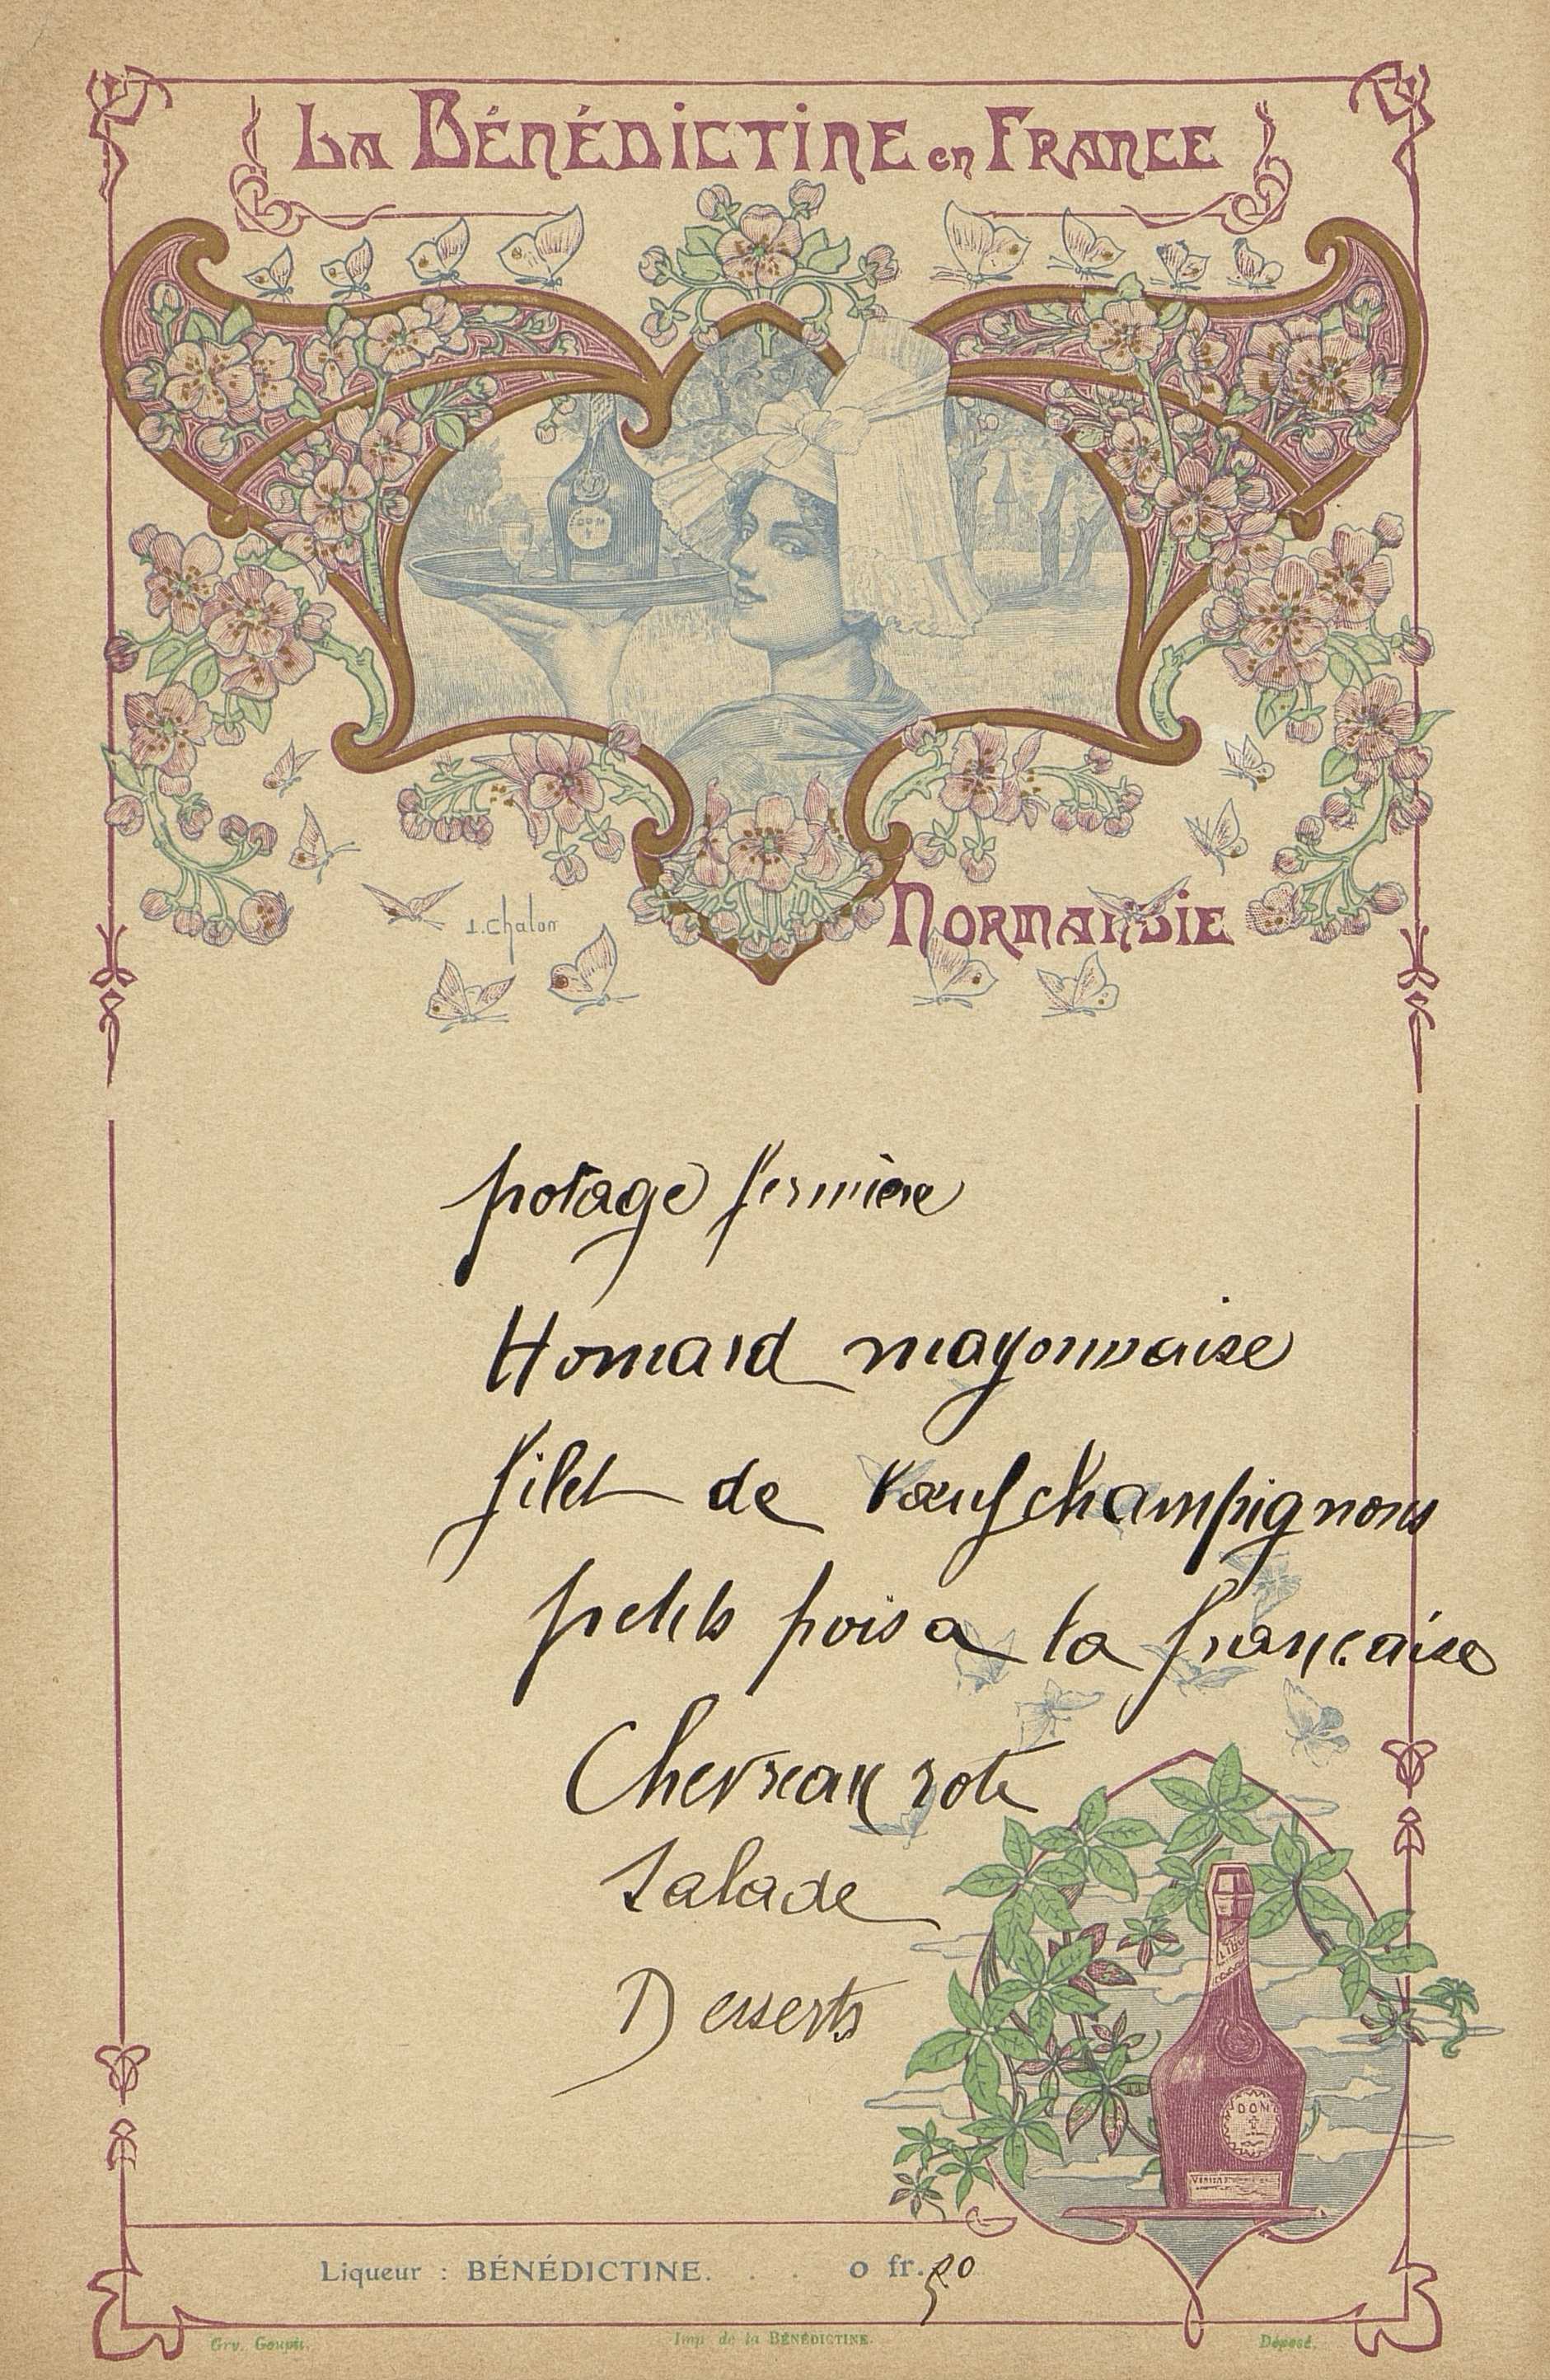 La BÉNÉDICTINE en FRANCE
DOM
L. Chalon
NORMANDIE
potage fermière
Homard mayonnaise
filet de bœuf champignons
petits pois a la française
Chevreau roti
Salade
Desserts
DOM
Liqueur : BÉNÉDICTINE. . . 0 fr. 50
Grv. Goupil.
Imp. de la BÉNÉDICTINE.
Déposé.